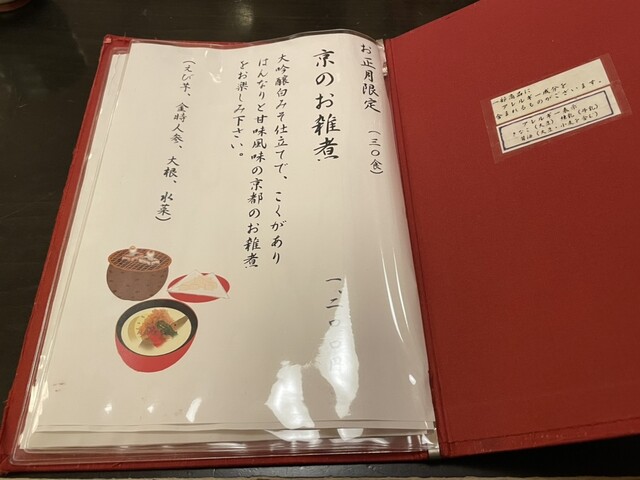 お正月限定 (三〇食)
京のお雑煮
一、二〇〇円
大吟醸白みそ仕立てで、こくがあり
はんなりと甘味風味の京都のお雑煮
をお楽しみ下さい。
(えび芋、金時人参、大根、水菜)
一部商品に
アレルギー成分を
含まれるものがございます。
アレルギー表示
きなこ(大豆) 練乳(牛乳)
醤油(大豆・小麦を含む)